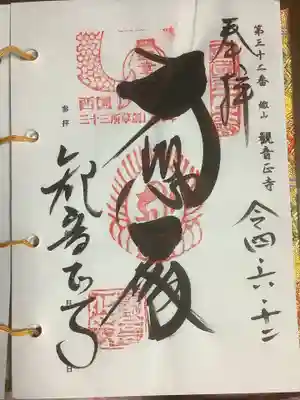 第三十二番 繖山 觀音正寺
奉拝
令四・六・十二
西国三十三所草創
大悲殿
観音正寺
参拝
日